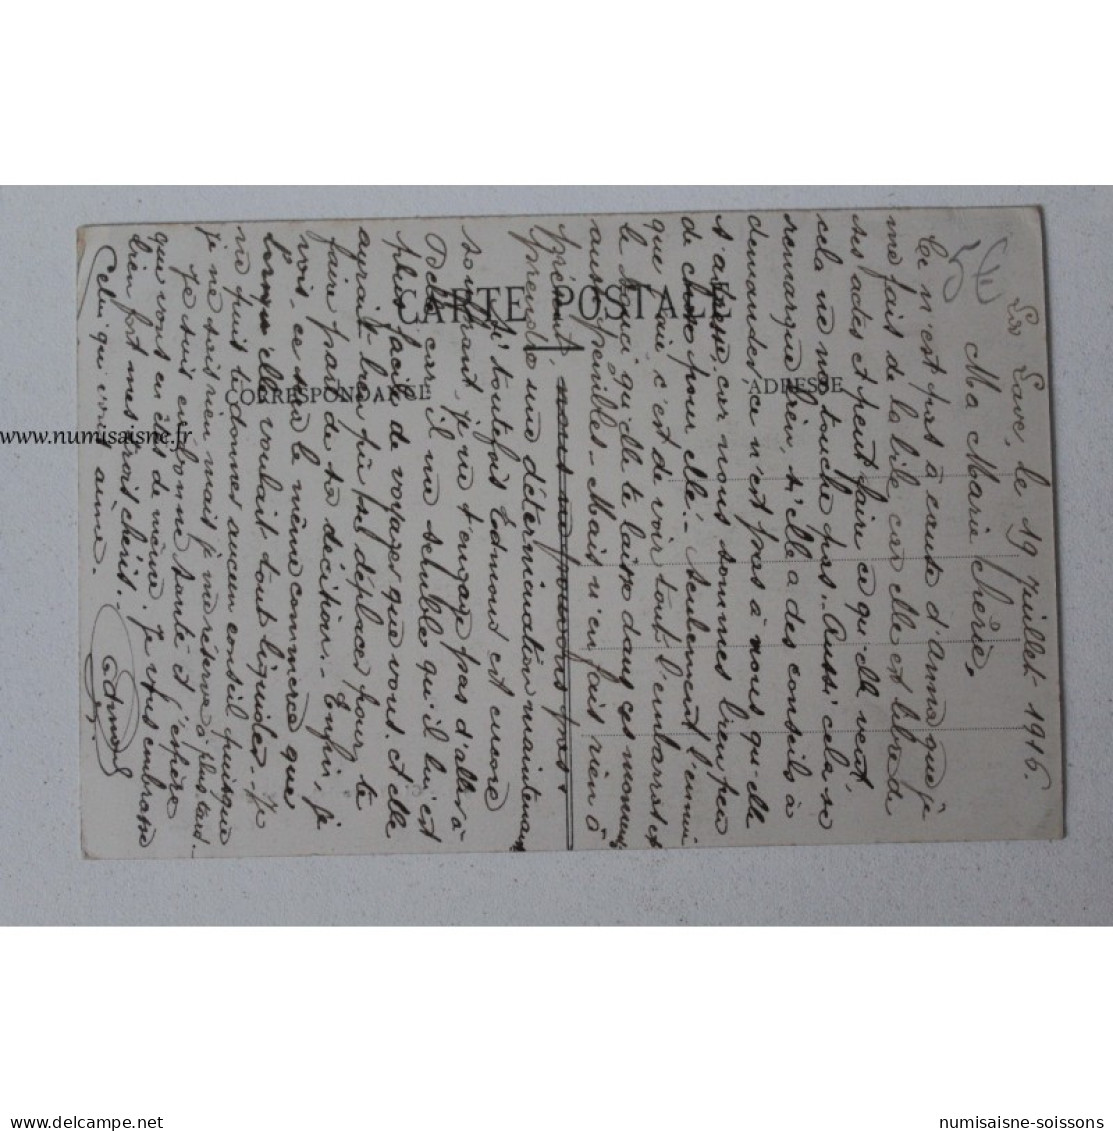 5€
Les Pavés, le 19 juillet 1916.
Ma Marie Chérie,
Ce n'est pas à cause d'Anna que je
me fais de la bile car elle est libre de
ses actes et peut faire ce qu'elle veut,
cela ne me touche pas. Aussi cela se
remarque bien, si elle a des conseils à
demander, ce n'est pas à nous qu'elle
s'adresse, car nous sommes bien peu
de chose pour elle. - Seulement l'ennui
que j'ai c'est de voir tout l'embarras et
le souci qu'elle te laisse dans ces moments
aussi pénibles - Mais n'en fais rien à
présent, nous ne pouvons pas
prendre une détermination maintenant
Si toutefois Edmond est encore
souffrant, je ne t'engage pas d'aller à
car il me semble qu'il lui est
plus facile de voyager que vous. et elle
aurait bien pu se déplacer pour te
faire part de sa décision. - Enfin, je
vois, ce sera le même commerce que
lorsque elle voulait tout liquider. - Je
ne puis te donner aucun conseil puisque
je ne sais rien mais je me réserve à plus tard. -
Je suis en bonne santé et j'espère
que vous en êtes de même. Je vous embrasse
bien fort mes trois chéris. -
Celui qui vous aime.
Edmond
CARTE POSTALE
CORRESPONDANCE
ADRESSE
www.numisaisne.fr
delcampe.net
numisaisne-soissons